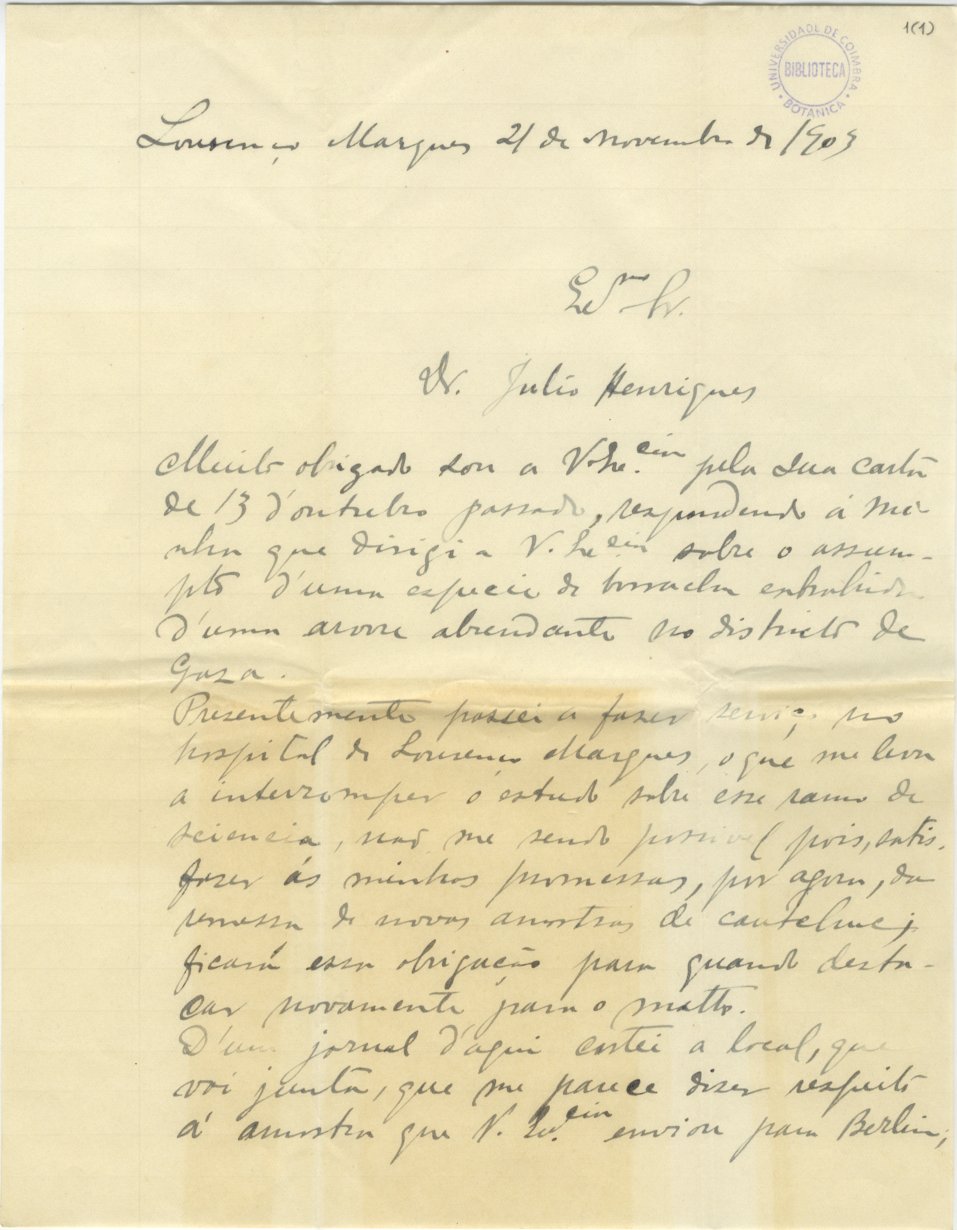 1(1)
UNIVERSIDADE DE COIMBRA
BIBLIOTECA
BOTANICA
Lourenço Marques 21 de Novembro de 1903
Ex.mo Sr.
Dr. Julio Henriques
Muito obrigado sou a V. Ex.cia pela sua carta
de 13 d'outubro passado, respondendo á mi-
nha que dirigi a V. Ex.cia sobre o assum-
pto d'uma especie de borracha extrahida
d'uma arvore abundante no districto de
Gaza.
Presentemente passei a fazer serviço no
hospital de Lourenço Marques, o que me leva
a interromper o estudo sobre esse ramo de
sciencia, não me sendo possivel pois, satis-
fazer ás minhas promessas, por agora, da
remessa de novas amostras de
ficará essa obrigação para quando desta-
car novamente para o matto.
D'um jornal d'aqui cortei a local, que
vai junta, que me parece dizer respeito
á amostra que V. Ex.cia enviou para Berlin;